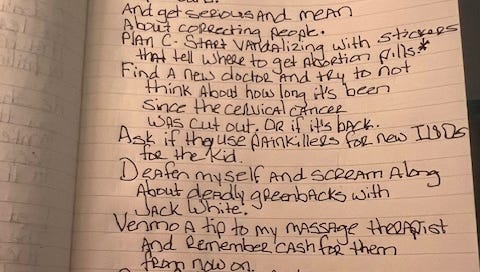 And get serious and mean
About correcting people.
Plan C. Start vandalizing with stickers
that tell where to get abortion pills*
Find a new doctor and try to not
think about how long it's been
since the cervical cancer
was cut out. Or if it's back.
Ask if they use painkillers for new IUDs
for the kid.
Deafen myself and scream along
About deadly greenbacks with
Jack White.
Venmo a tip to my massage therapist
and remember cash for them
from now on.